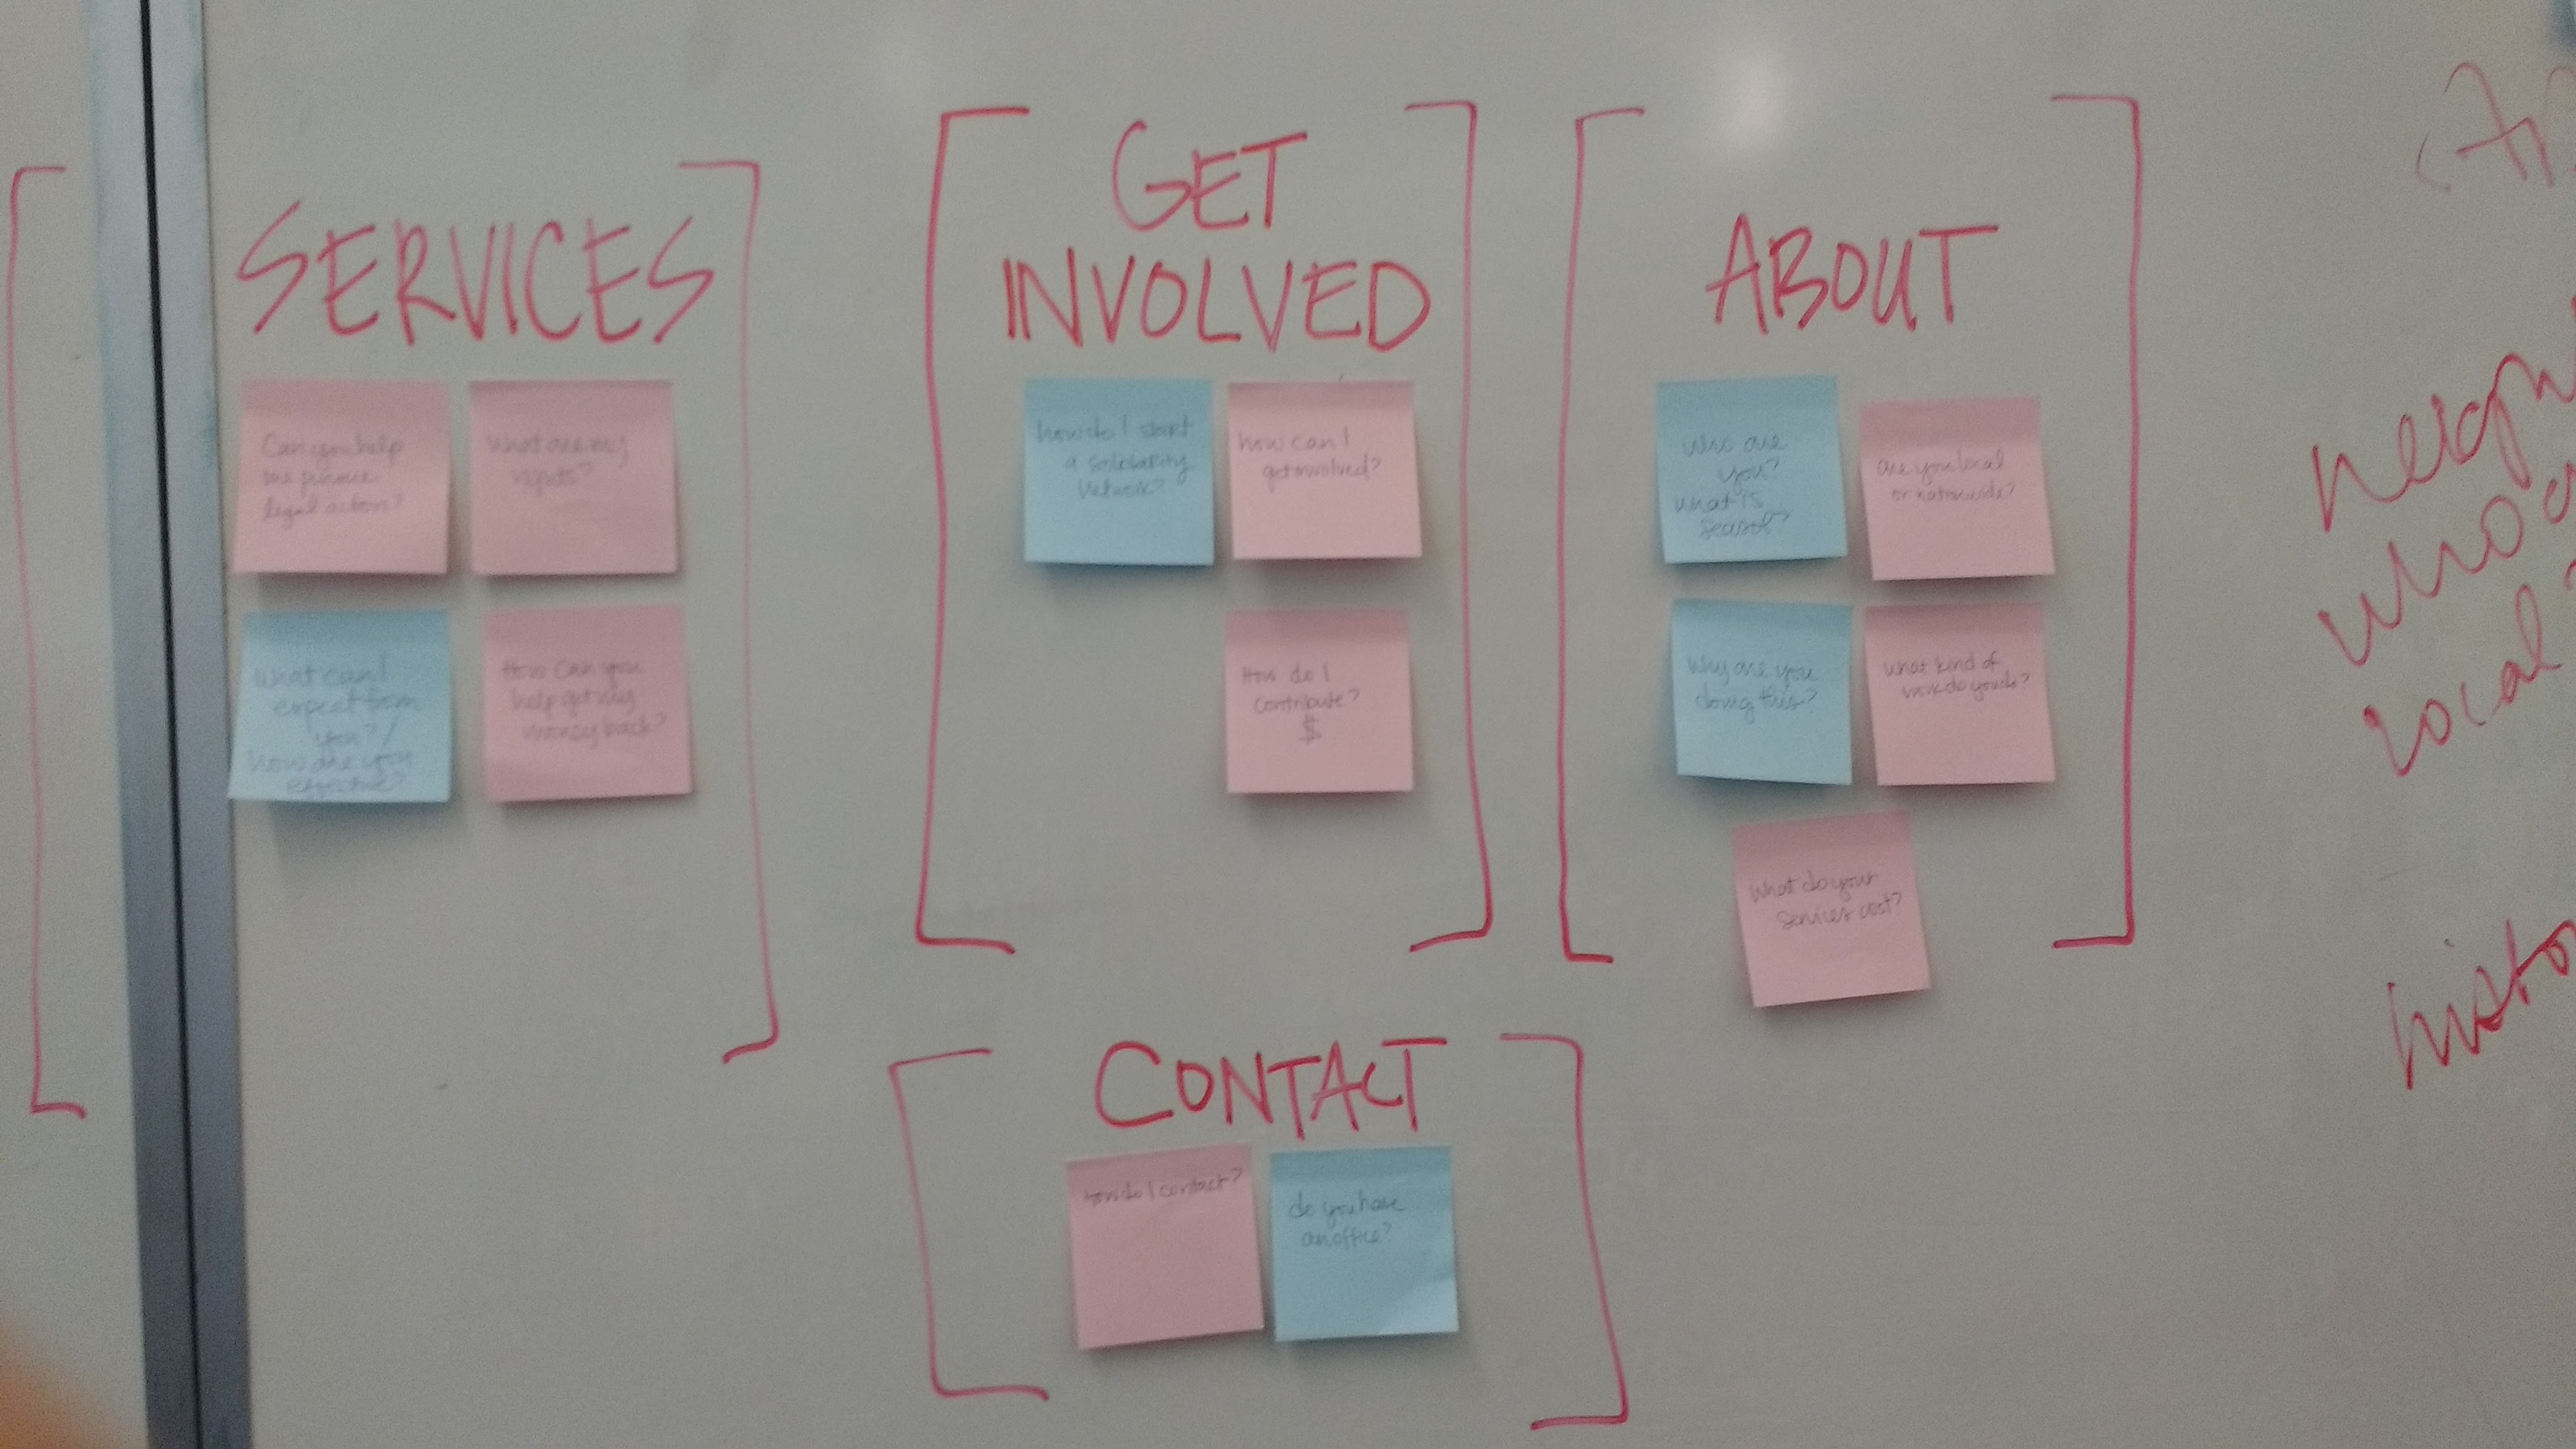 SERVICES
Can you help
me pursue
legal action?
What are my
rights?
What can I
expect from
you? /
how are you
effective?
How can you
help get my
money back?
GET
INVOLVED
how do I start
a solidarity
network?
how can I
get involved?
How do I
contribute?
$
ABOUT
who are
you?
what is
seasol?
are you local
or nationwide?
Why are you
doing this?
what kind of
work do you do?
What do your
services cost?
CONTACT
How do I contact?
do you have
an office?
local